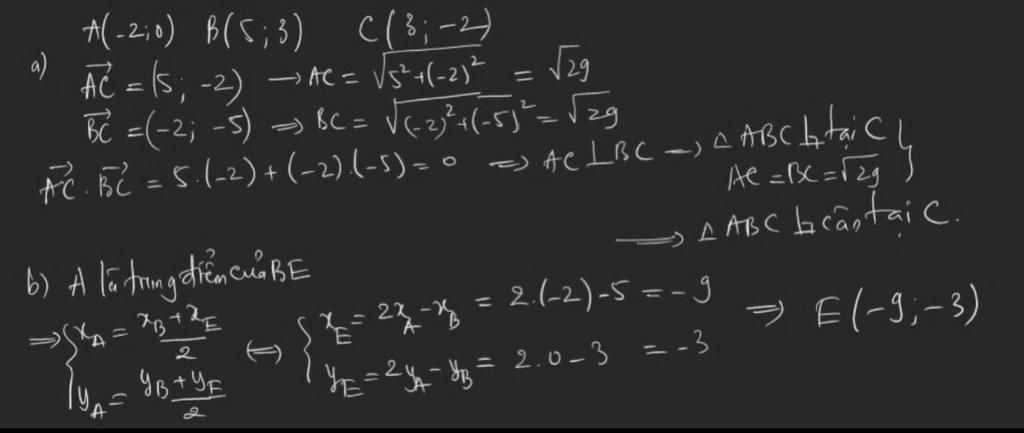 A(-2;0) B(5;3) C(3;-2)
a) \overrightarrow{AC} = (5; -2) → AC = \sqrt{5²+(-2)²} = \sqrt{29}
\overrightarrow{BC} = (-2; -5) ⇒ BC = \sqrt{(-2)²+(-5)²} = \sqrt{29}
\overrightarrow{AC} . \overrightarrow{BC} = 5.(-2) + (-2).(-5) = 0 ⇒ AC ⊥ BC → △ ABC ⊾ tại C }
AC = BC = \sqrt{29}
⟹ △ ABC ⊾ cân tại C.
b) A là trung điểm của BE
⇒ { x_A = \frac{x_B + x_E}{2} ⇔ { x_E = 2x_A - x_B = 2.(-2) - 5 = -9 ⇒ E(-9; -3)
y_A = \frac{y_B + y_E}{2} y_E = 2y_A - y_B = 2.0 - 3 = -3